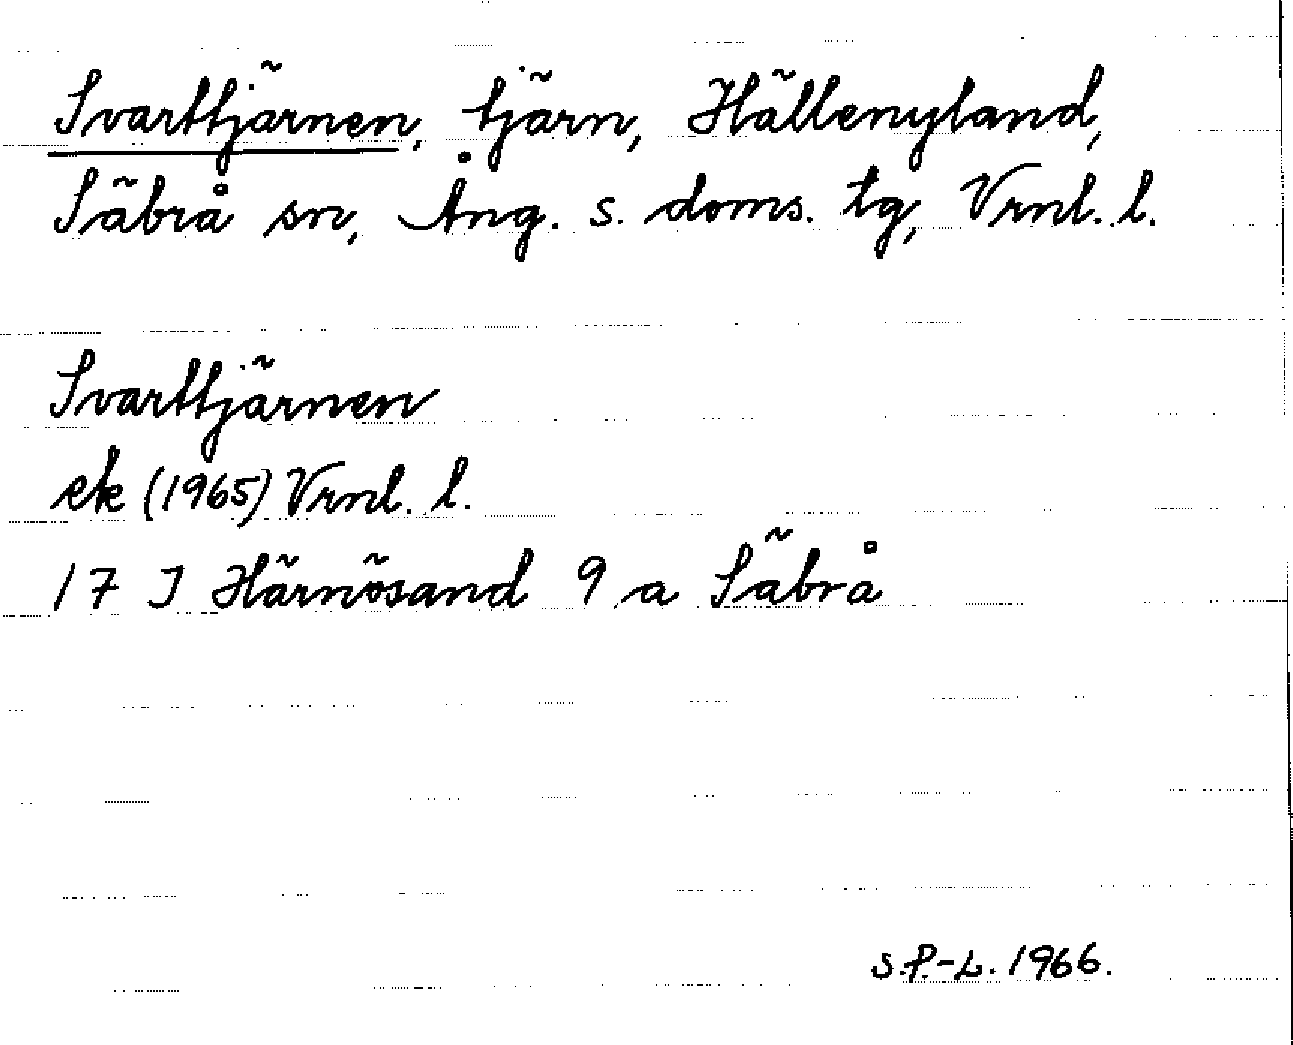 Svarttjärnen, tjärn, Hällenyland,
Säbrå sn, Ång. s. doms. tg, Vrnl. l.
Svarttjärnen
ek (1965) Vrnl. l.
17 J Härnösand 9 a Säbrå
S.P.-L. 1966.